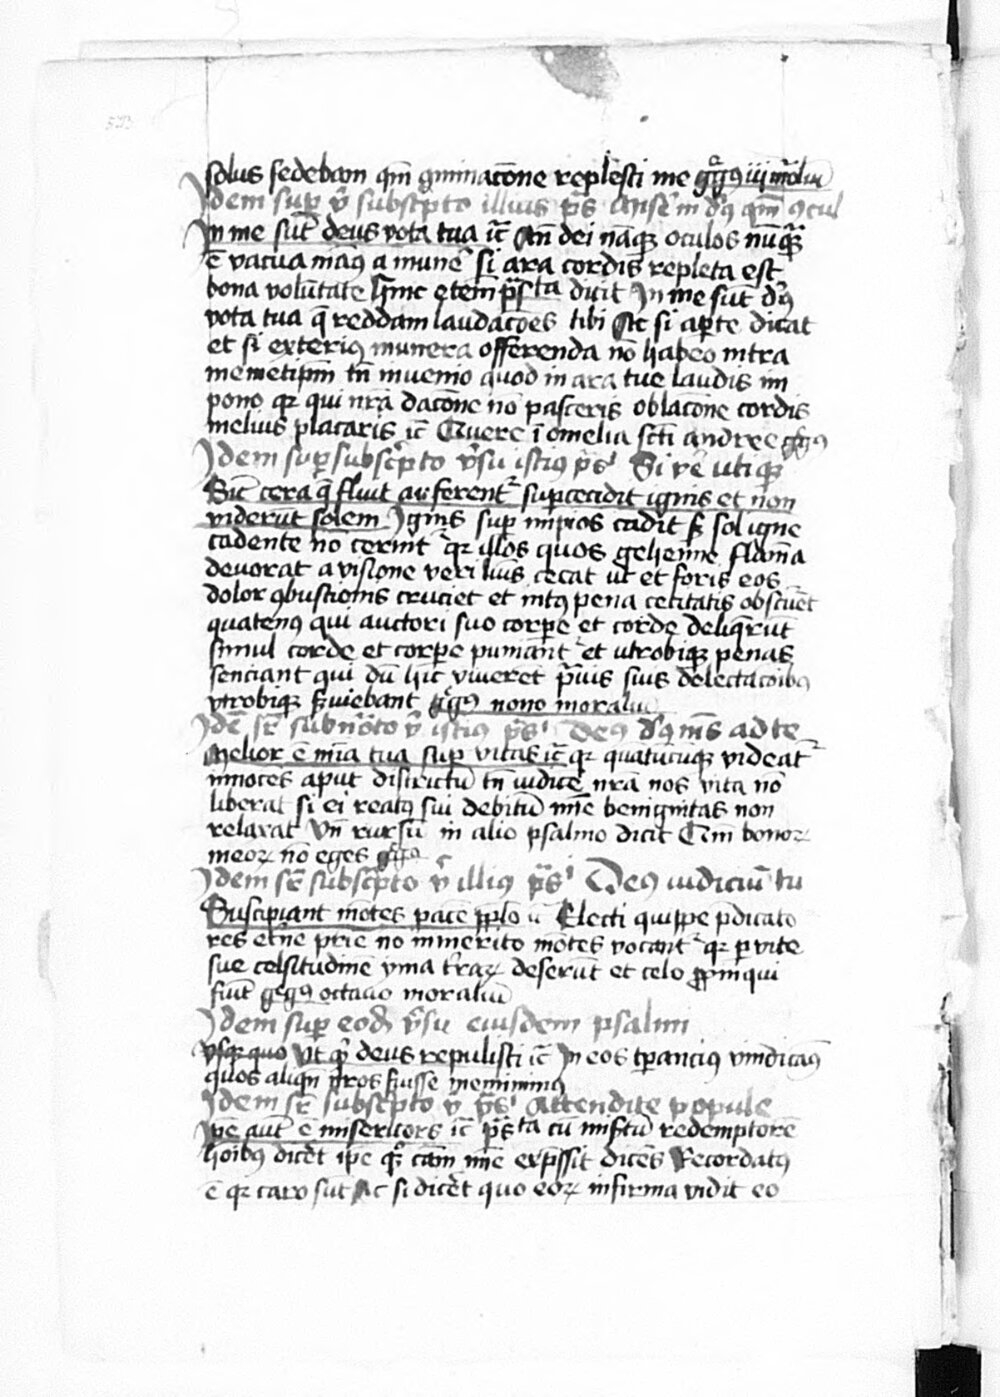 solus sedebam qm̄ cōminacōne replesti me gͣgꝰ iij moͬliū
Idem suꝑ v̉ subscͥpto illius pˢ Miserē m̄ dꝰ qm̄ ꝯcul
In me sūt deus vota tua ic̄ An̄ dei nāqꝫ oculos nūqͣꝫ
ē vacua manꝰ a mune͛ si ara cordis repleta est
bona volūtate hinc etem̄ pˢta dicit In me sūt dꝰ
vota tua q̄ reddam laudacōes tibi Ac si aꝑte dicat
et si exteriꝰ munera offerenda nō habeo intra
memetipm̄ tn̄ invenio quod in ara tue laudis im
pono qꝛ qui nrā dacōne nō pasceris oblacōne cordis
melius placaris ic̄ Quere ī omelia scti andree gͣgꝰ
Idem suꝑ subscͥpto v̉su istiꝰ pˢ Si ve͛ utiqꝫ
Sic̄ cera q̄ fluit auferent᷑ suꝑcecidit ignis et non
viderūt solem Ignis suꝑ impios cadit sꝫ sol igne
cadente nō cernit᷑ qꝛ illos quos gehenne flam̄a
devorat a visione veri luīs cecat ut et foris eos
dolor ꝯbustionis cruciet et intꝰ pena cecitatis obscuret
quatenꝰ qui auctori suo corpe et corde deliqͥrūt
simul corde et corꝑe puniant᷑ et utrobiqꝫ penas
senciant qui dū hic viverēt pͣuis suis delectacōibꝰ
vtrobiqꝫ ẜuiebant gͣgꝰ nono moraliū
Idē sr̄ subnoto v̉ istiꝰ pˢ Deus dꝰ mͫs ad te
Melior ē mīa tua suꝑ vitas ic̄ qꝛ quātūcūqꝫ videat᷑
innocēs aput districtū tn̄ iudicē nrā nos vita nō
liberat si ei reatꝰ sui debitū mīe benignitas non
relaxat Vn̄ rursū in alio psalmo dicit Qm̄ bonoꝝ
meoꝝ nō eges gͣgꝰ
Idem sr̄ subscͥpto v̉ illiꝰ pˢ Deus iudiciū tu
Suscipiant mōtes pacē pplo ic̄ Electi quippe pͬdicato
res etne pͬrie nō inmerito mōtes vocant᷑ qꝛ ꝑ vite
sue celsitudinē yma t͛raꝝ deserūt et celo ꝓpinqui
fiūt gͣgꝰ octavo moraliū
Idem suꝑ eodē v̉su eiusdem psalmi
Vsqꝫ quo Ut qͥd deus repulisti ic̄
quos aliqn̄ pͬros fuisse meminimꝰ
Idem sr̄ subscͥpto v̉ pˢ Attendite popule
Ipē aūt ē misericors ic̄ pˢta cū mistū redemptorē
hoībꝰ dice͛t ipē Recordatꝰ
ē qꝛ caro sūt Ac si dice͛t quo eoꝝ infirma vidit eo